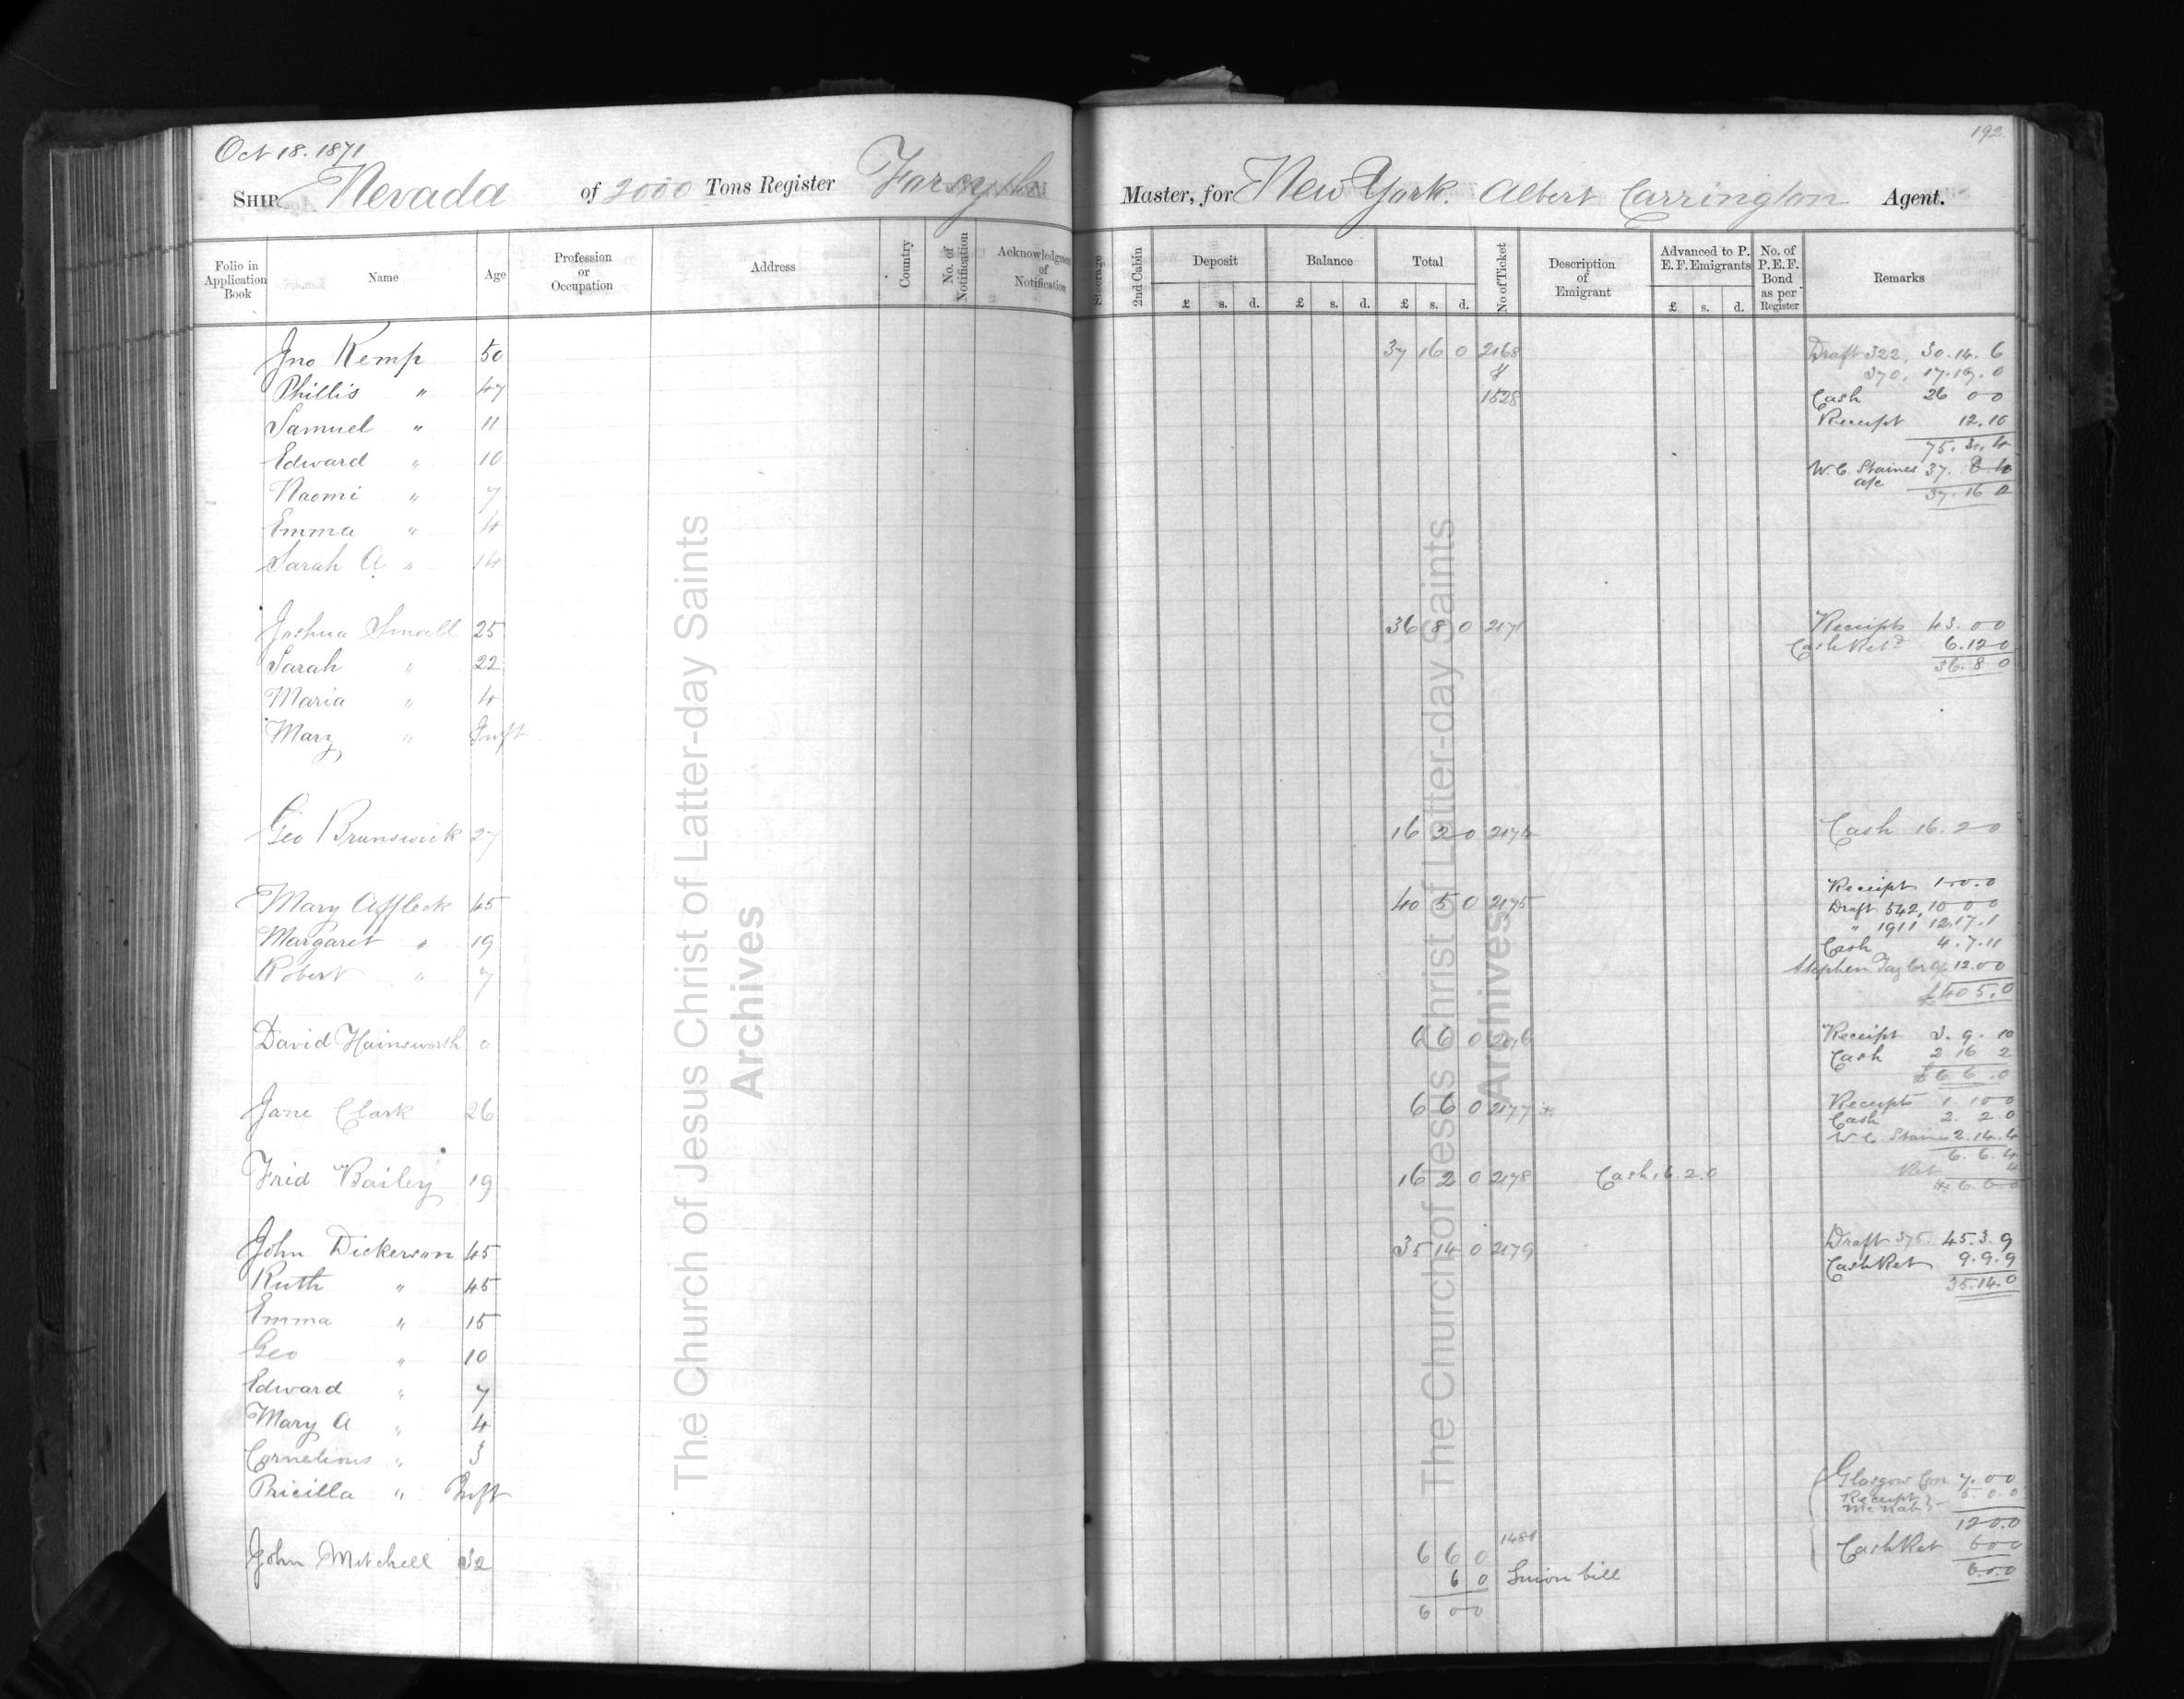 192.
Oct 18. 1871
SHIP Nevada of 2000 Tons Register Forsyth Master, for New York. Albert Carrington Agent.
Folio in Application Book Name Age Profession or Occupation Address Country No. of Notification Acknowledgment of Notification Steerage 2nd Cabin Deposit Balance Total No of Ticket Description of Emigrant Advanced to P. E. F. Emigrants No. of P. E. F. Bond as per Register Remarks
£ s. d. £ s. d. £ s. d. £ s. d.
Jno Kemp 50 37 16 0 2168 Draft 322, 30. 14. 6
& 370, 17. 19. 0
Phillis " 47 1528 Cash 26 0 0
Samuel " 11 Receipt 12. 10
75. 3. 4
Edward " 10 W. C. Staines a/c 37.
Naomi " 7 37. 16 0
Emma " 4
Sarah A " 14
Joshua Small 25 36 8 0 2171 Receipts 43. 0 0
Cash Retd 6. 12 0
Sarah " 22 36. 8 0
Maria " 4
Mary " Inft
Geo Brunswick 27 16 2 0 2174 Cash 16. 2 0
Receipt 1. 0. 0
Mary Affleck 45 40 5 0 2175 Draft 542, 10 0 0
" 1911 12. 17. 1
Margaret " 19 Cash 4. 7. 11
Robert " 7 Stephen Taylor a/c 12. 0 0
£40 5. 0
David Hainsworth 6 6 0 2176 Receipt 3. 9. 10
Cash 2 16 2
£6 6. 0
Jane Clark 26 6 6 0 2177 Receipts 1. 10 0
Cash 2. 2. 0
W. C. Staines 2. 14. 4
6. 6. 4
Frid Bailey 19 16 2 0 2178 Cash 16. 2. 0 Ret 4
6. 6. 0
John Dickerson 45 35 14 0 2179 Draft 375. 45. 3. 9
Cash Ret 9. 9. 9
Ruth " 45 35. 14. 0
Emma " 15
Geo " 10
Edward " 7
Mary A " 4
Cornelious " 3
Glasgow Con 7. 0 0
Pricilla " Inft Receipt McNab 5. 0. 0
12 0. 0
John Mitchell 32 6 6 0 1481 Cash Ret 6 0 0
6 0 Union bill 6. 0. 0
6 0 0
The Church of Jesus Christ of Latter-day Saints
Archives
The Church of Jesus Christ of Latter-day Saints
Archives